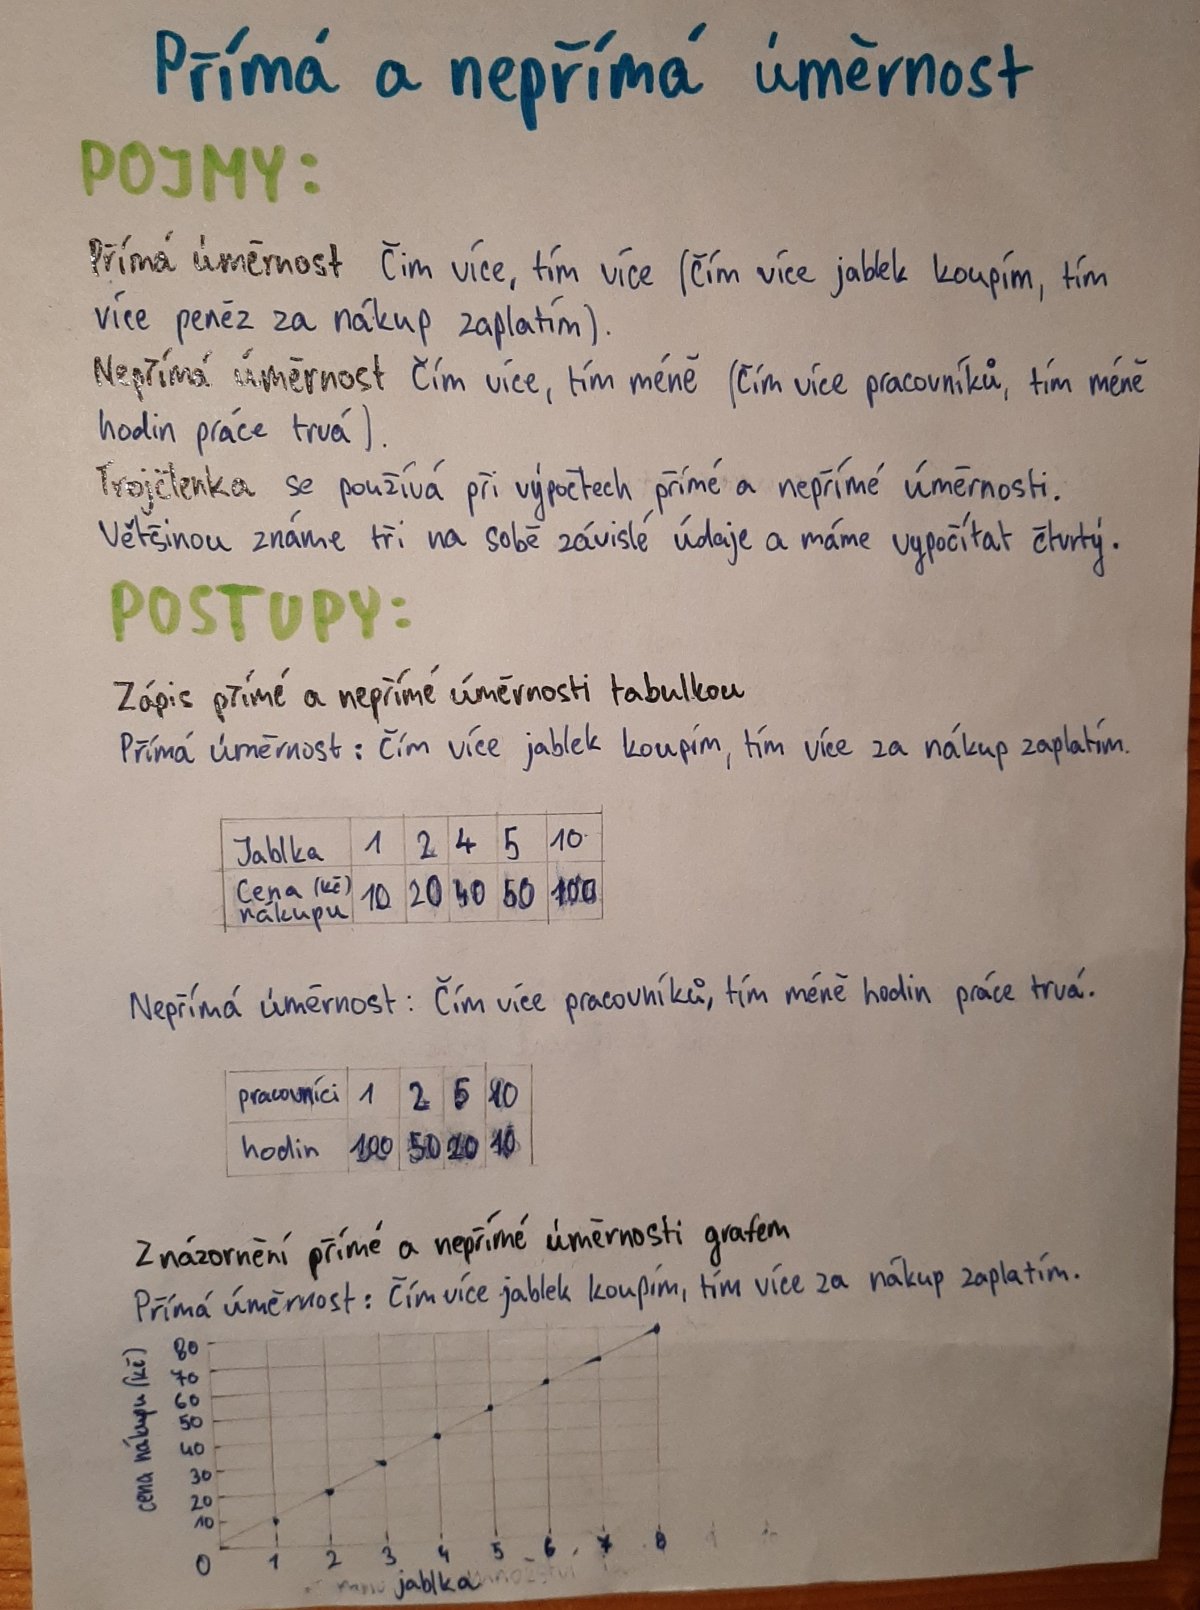 Přímá a nepřímá úměrnost
POJMY:
Přímá úměrnost Čím více, tím více (čím více jablek koupím, tím
více peněz za nákup zaplatím).
Nepřímá úměrnost Čím více, tím méně (čím více pracovníků, tím méně
hodin práce trvá).
Trojčlenka se používá při výpočtech přímé a nepřímé úměrnosti.
Většinou známe tři na sobě závislé údaje a máme vypočítat čtvrtý.
POSTUPY:
Zápis přímé a nepřímé úměrnosti tabulkou
Přímá úměrnost: Čím více jablek koupím, tím více za nákup zaplatím.
Jablka 1 2 4 5 10
Cena (kč) nákupu 10 20 40 50 100
Nepřímá úměrnost: Čím více pracovníků, tím méně hodin práce trvá.
pracovníci 1 2 5 10
hodin 100 50 20 10
Znázornění přímé a nepřímé úměrnosti grafem
Přímá úměrnost: Čím více jablek koupím, tím více za nákup zaplatím.
cena nákupu (kč)
80
70
60
50
40
30
20
10
0 1 2 3 4 5 6 7 8
jablka